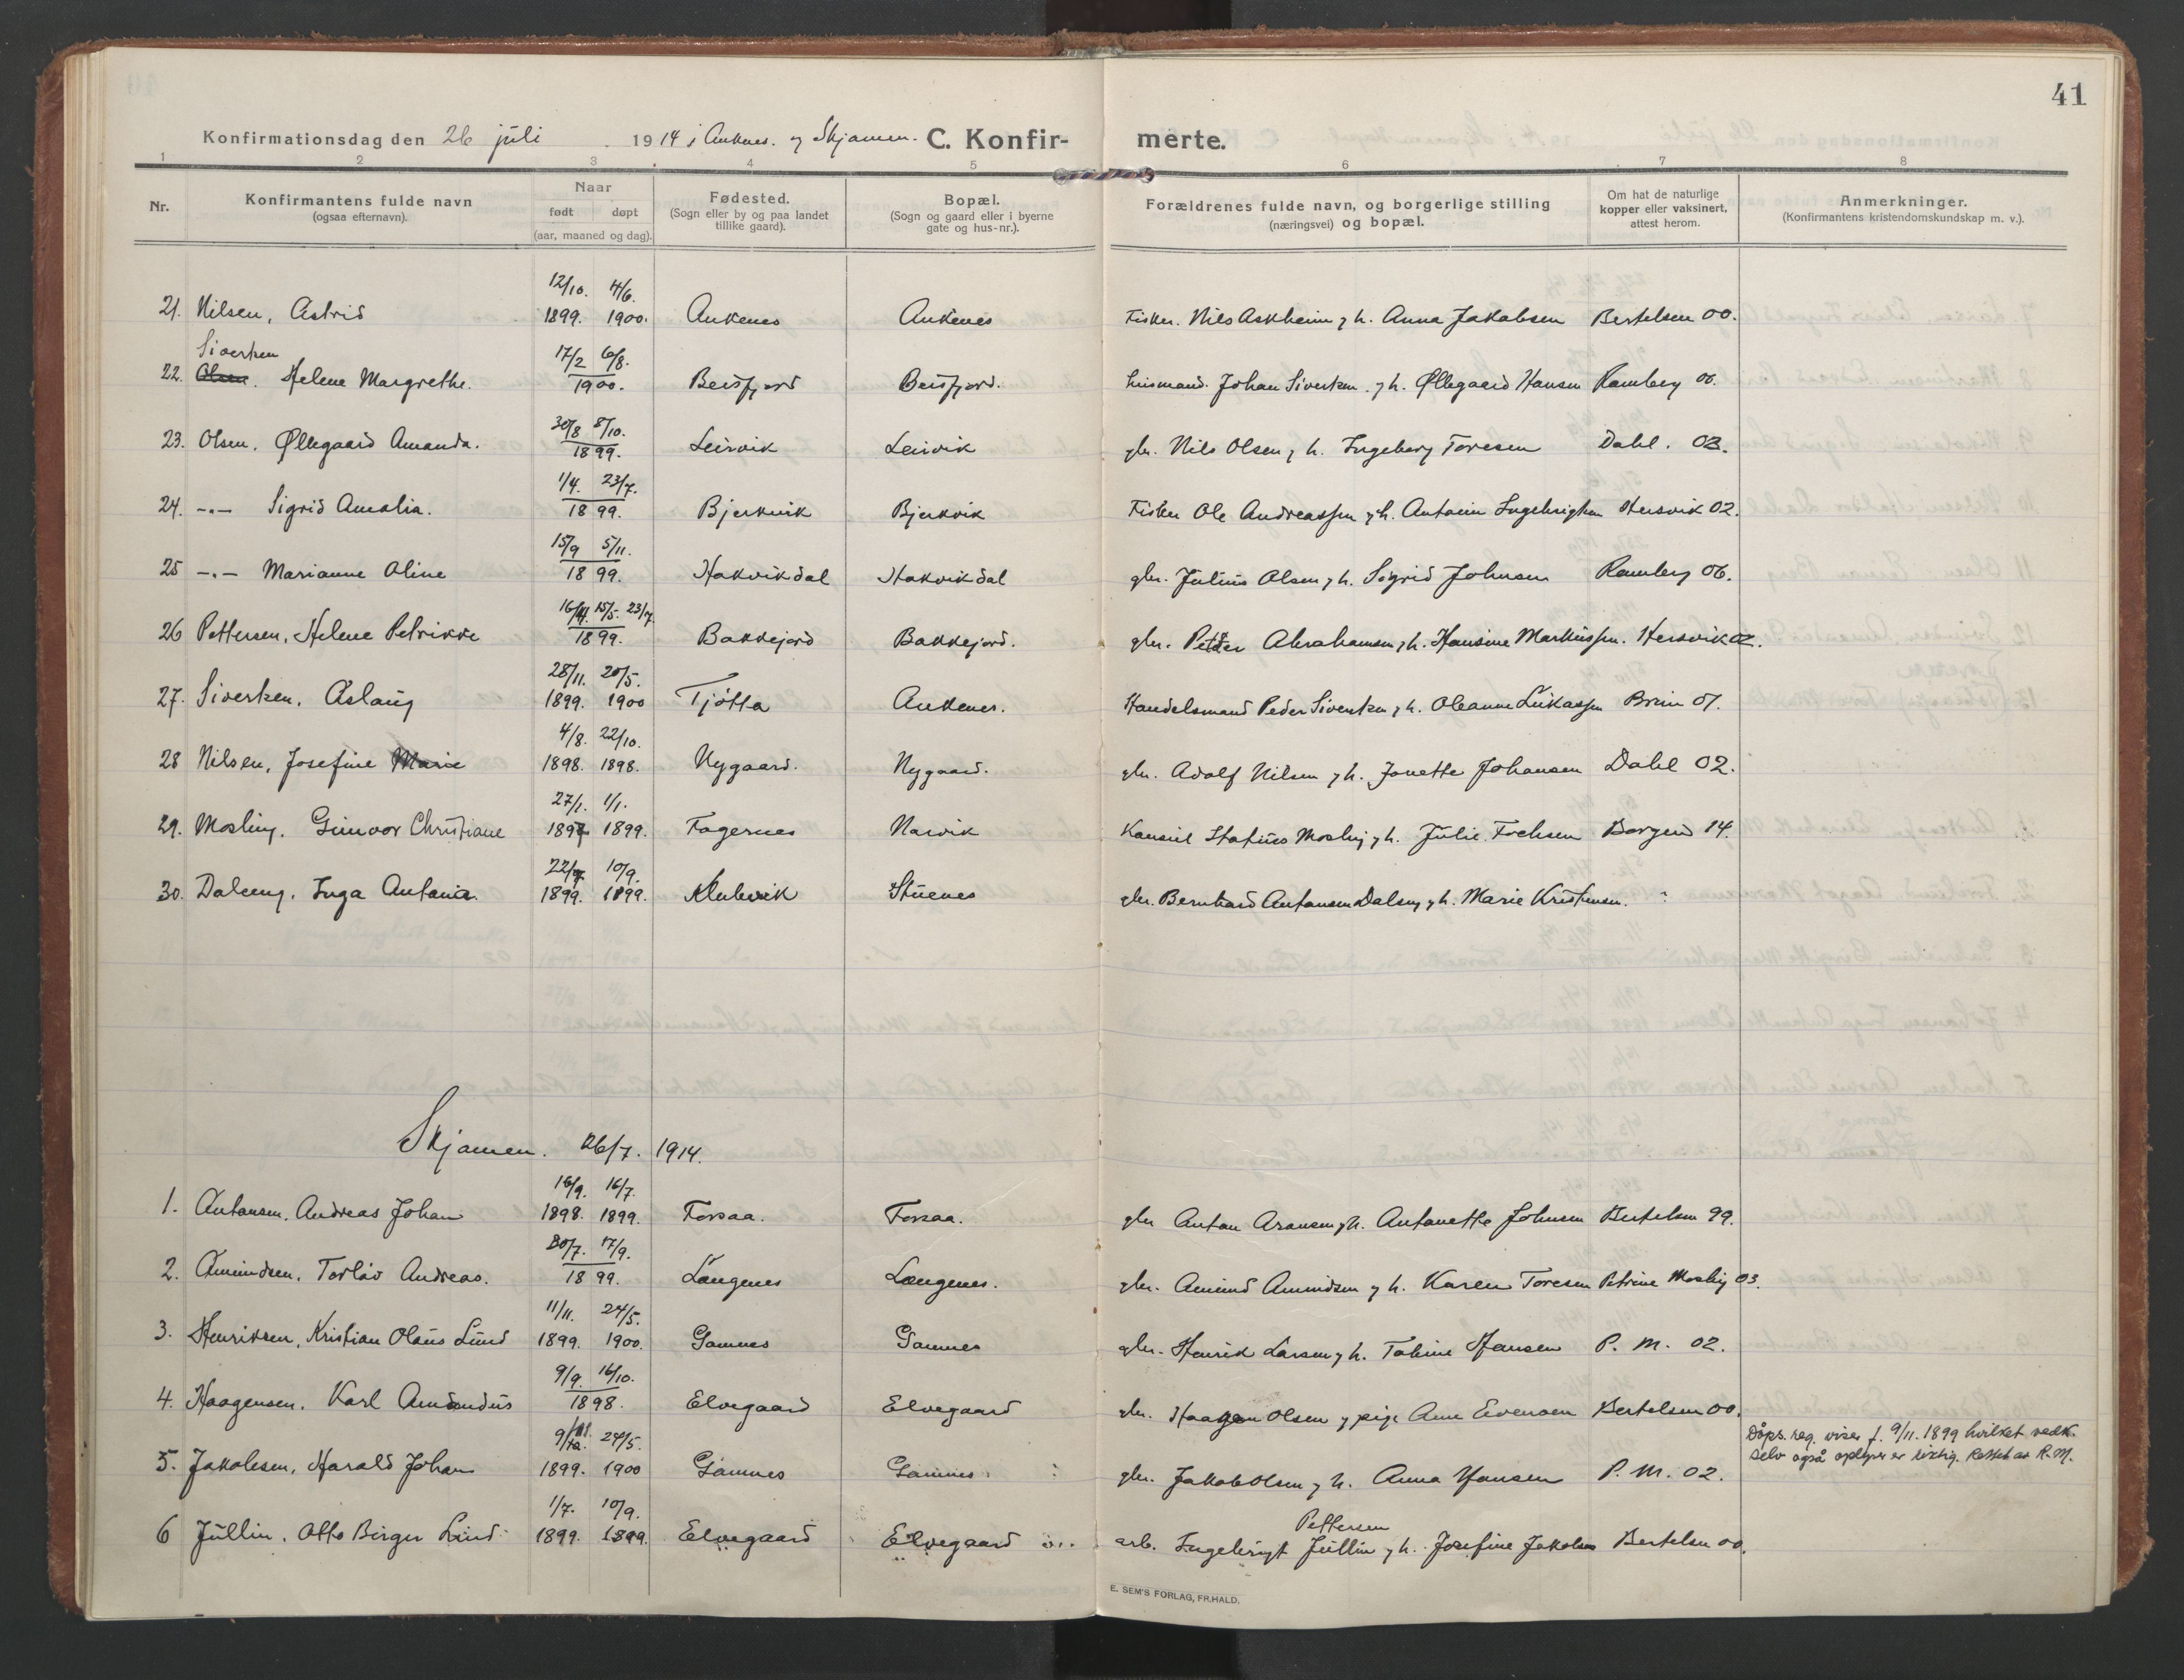 41
Konfirmationsdag den 26 juli 1914 i Ankenes. og Skjomen. C. Konfirmerte.
1 2 3 4 5 6 7 8
Nr.
Konfirmantens fulde navn (ogsaa efternavn).
Naar født døpt (aar, maaned og dag).
Fødested. (Sogn eller by og paa landet tillike gaard).
Bopæl. (Sogn og gaard eller i byerne gate og hus-nr.).
Forældrenes fulde navn, og borgerlige stilling (næringsvei) og bopæl.
Om hat de naturlige kopper eller vaksinert, attest herom.
Anmerkninger. (Konfirmantens kristendomskundskap m. v.).
21. Nilsen, Astrid 12/10. 1899. 4/6. 1900. Ankenes Ankenes Fisker. Nils Askheim og h. Anna Jakobsen Bertelsen 00.
22. Olsen. Sivertsen Helene Margrethe. 17/2 6/8. 1900. Beisfjord Beisfjord. Husmand. Johan Sivertsen og h. Øllegaard Hansen Ramberg 06.
23. Olsen. Øllegaard Amanda. 30/8 8/10. 1899. Leirvik Leirvik gbr. Nils Olsen og h. Ingeborg Toresen Dahl. 03.
24. -.- Sigrid Amalia. 1/4. 23/7. 1899. Bjerkvik Bjerkvik Fisker Ole Andreassen og h. Antonie Ingebrigtsen Hersvik 02.
25 -.- Marianne Oline 15/9 5/11. 1899. Hakvikdal Hakvikdal gbr. Julius Olsen og h. Sigrid Johnsen Ramberg 06.
26 Pettersen, Helene Petrikke 16/4. 15/5. 23/7. 1899. Bakkejord Bakkejord. gbr. Petter Abrahamsen og h. Hansine Markussen. Hersvik 02.
27. Sivertsen, Aslaug 28/11. 1899. 20/5. 1900 Tjøtta Ankenes. Handelsmand Peder Sivertsen og h. Oleanna Lukassen Bruun 01.
28 Nilsen, Josefine Marie 4/8. 1898. 22/10. 1898. Nygaard. Nygaard. gbr. Adolf Nilsen og h. Jonette Johansen Dahl 02.
29. Mosling. Gunvor Christiane 27/1. 1898 1/1. 1899. Fagernes Narvik Statius Mosling og h. Julie Borgen 14.
30. Daleng. Inga Antonia. 22/7. 1899. 10/9. 1899. Klubvik Stuenes gbr. Bernhard Antonsen Daleng og h. Marie Kristensen.
Skjomen. 26/7. 1914.
1. Antonsen. Andreas Johan 16/9. 1898. 16/7. 1899. Forsaa. Forsaa. gbr Anton Aronsen og h. Antonette Johnsen Bertelsen 99.
2. Amundsen, Torlåv Andreas. 30/7. 17/9. 1899. Langenes Langenes. gbr. Amund Amundsen og h. Karen Toresen Petrine Mosling 03.
3. Henriksen, Kristian Olaus Lund 11/11. 1899. 24/5. 1900. Gamnes Gamnes gbr. Henrik Larsen og h. Tobine Hansen P. M. 02.
4. Haagensen. Karl Amandus 9/9. 16/10. 1898. Elvegaard Elvegaard gbr. Haagen Olsen og pige Ane Evensen Bertelsen 00.
5. Jakobsen, Harald Johan 9/11. 1899. 24/5. 1900 Gamnes Gamnes gbr. Jakob Olsen og h. Anna Hansen P. M. 02. Dåps. reg. viser f. 9/11. 1899 hvilket vedk. selv også oplyser er riktig. Rettet av R.M.
6 Jullin. Otto Birger Lund 1/7. 1899. 10/9. 1899. Elvegaard Elvegaard arb. Ingebrigt Pettersen Jullin og h. Josefine Jakobsen Bertelsen 00.
E. SEM'S FORLAG, FR.HALD.